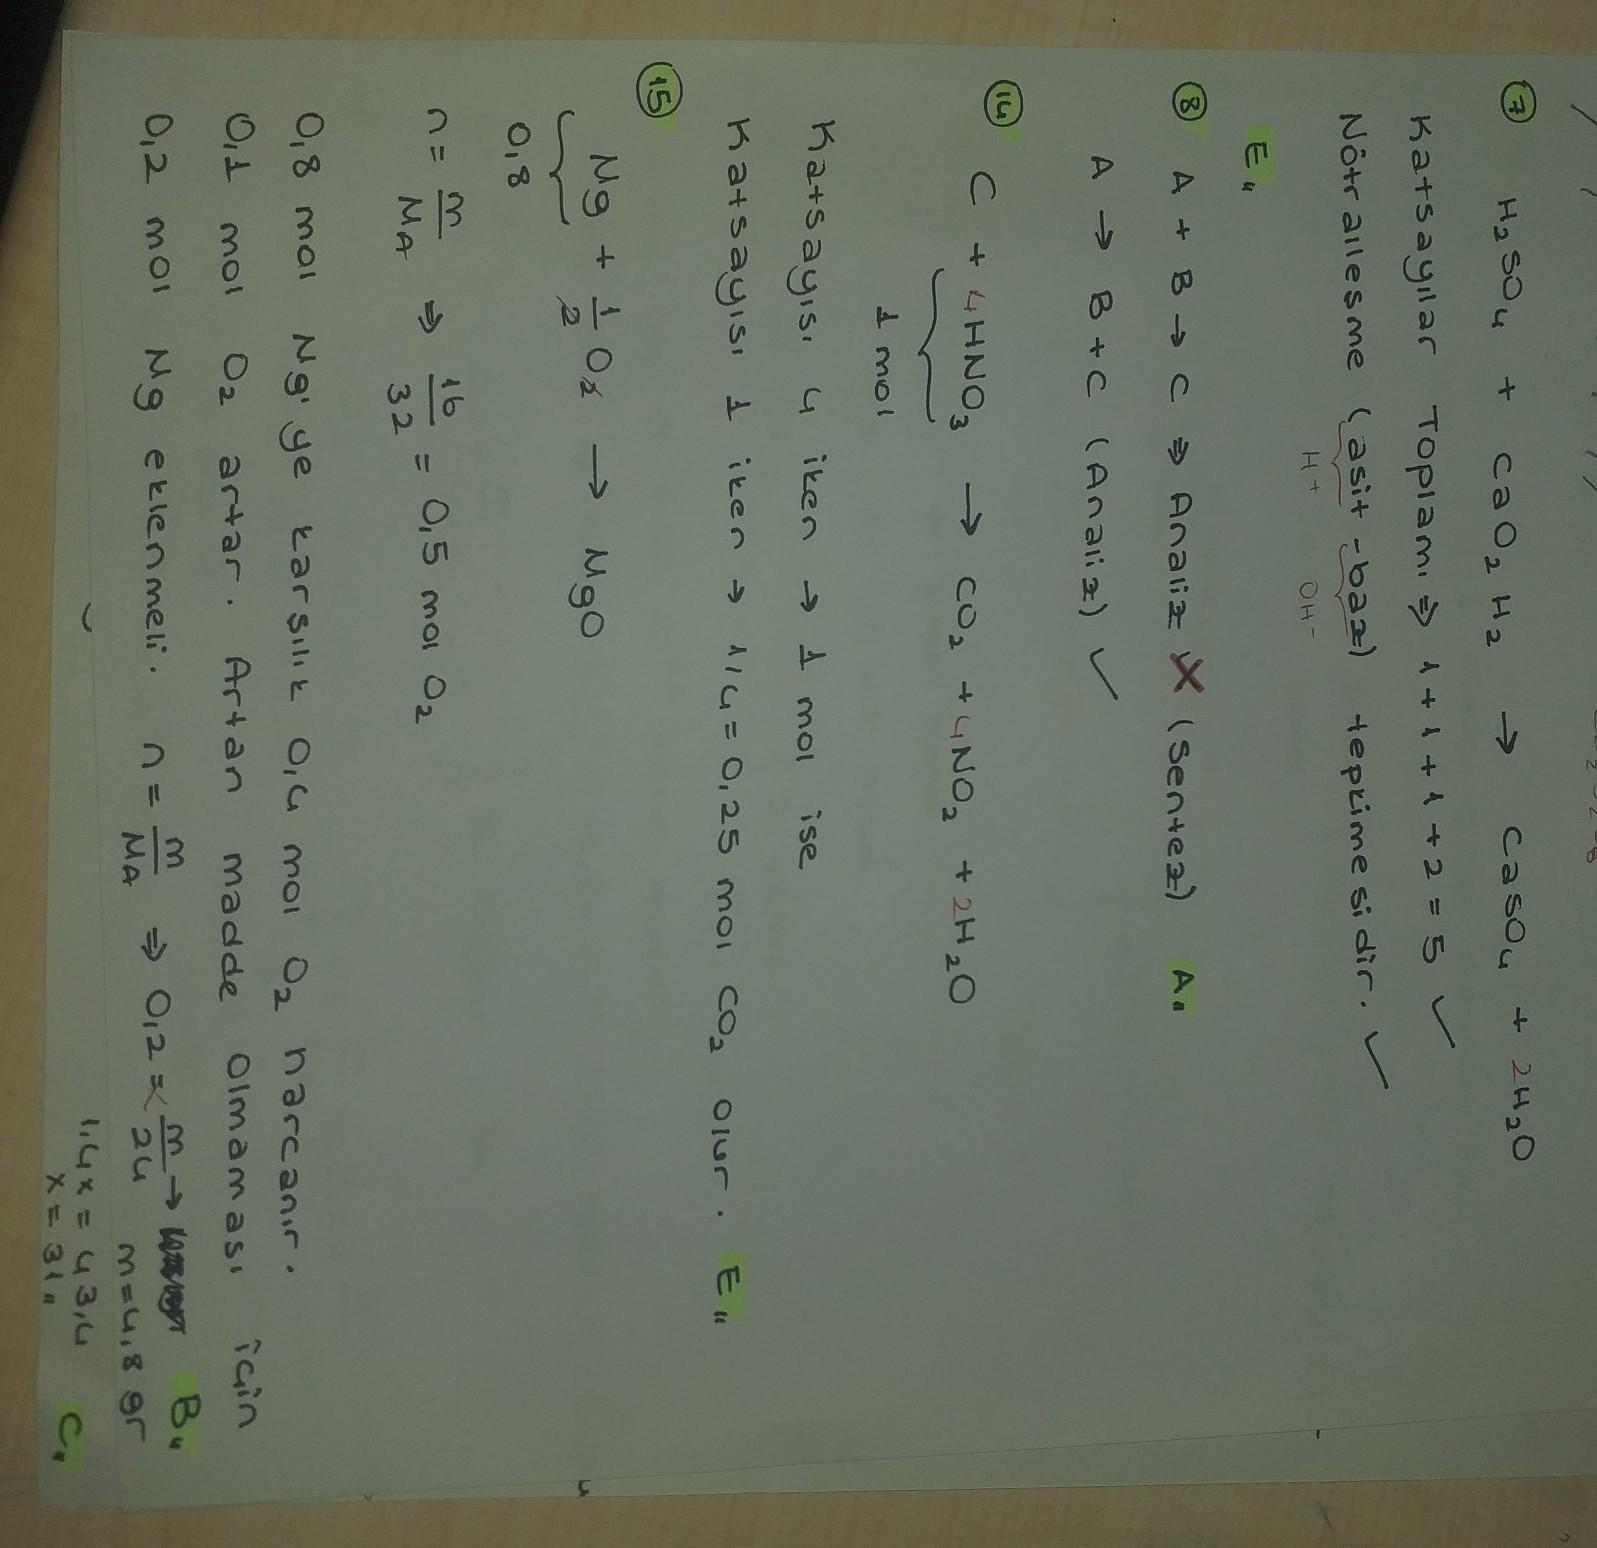 7 H2SO4 + CaO2H2 → CaSO4 + 2H2O
Katsayılar Toplamı ⇒ 1 + 1 + 1 + 2 = 5 ✓
Nötralleşme (asit - baz) tepkimesidir. ✓
H+ OH-
E,,
8 A + B → C ⇒ Analiz X (Sentez) A,,
A → B + C (Analiz) ✓
14 C + 4HNO3 → CO2 + 4NO2 + 2H2O
1 mol
Katsayısı 4 iken → 1 mol ise
Katsayısı 1 iken → 1/4 = 0,25 mol CO2 olur. E,,
15 Mg + 1/2 O2 → MgO
0,8
n = m/MA ⇒ 16/32 = 0,5 mol O2
0,8 mol Mg'ye karşılık 0,4 mol O2 harcanır.
0,1 mol O2 artar. Artan madde olmaması için
0,2 mol Mg eklenmeli. n = m/MA ⇒ 0,2 = m/24 → B,,
m = 4,8 gr
1,4x = 43,4
x = 31,, C,,